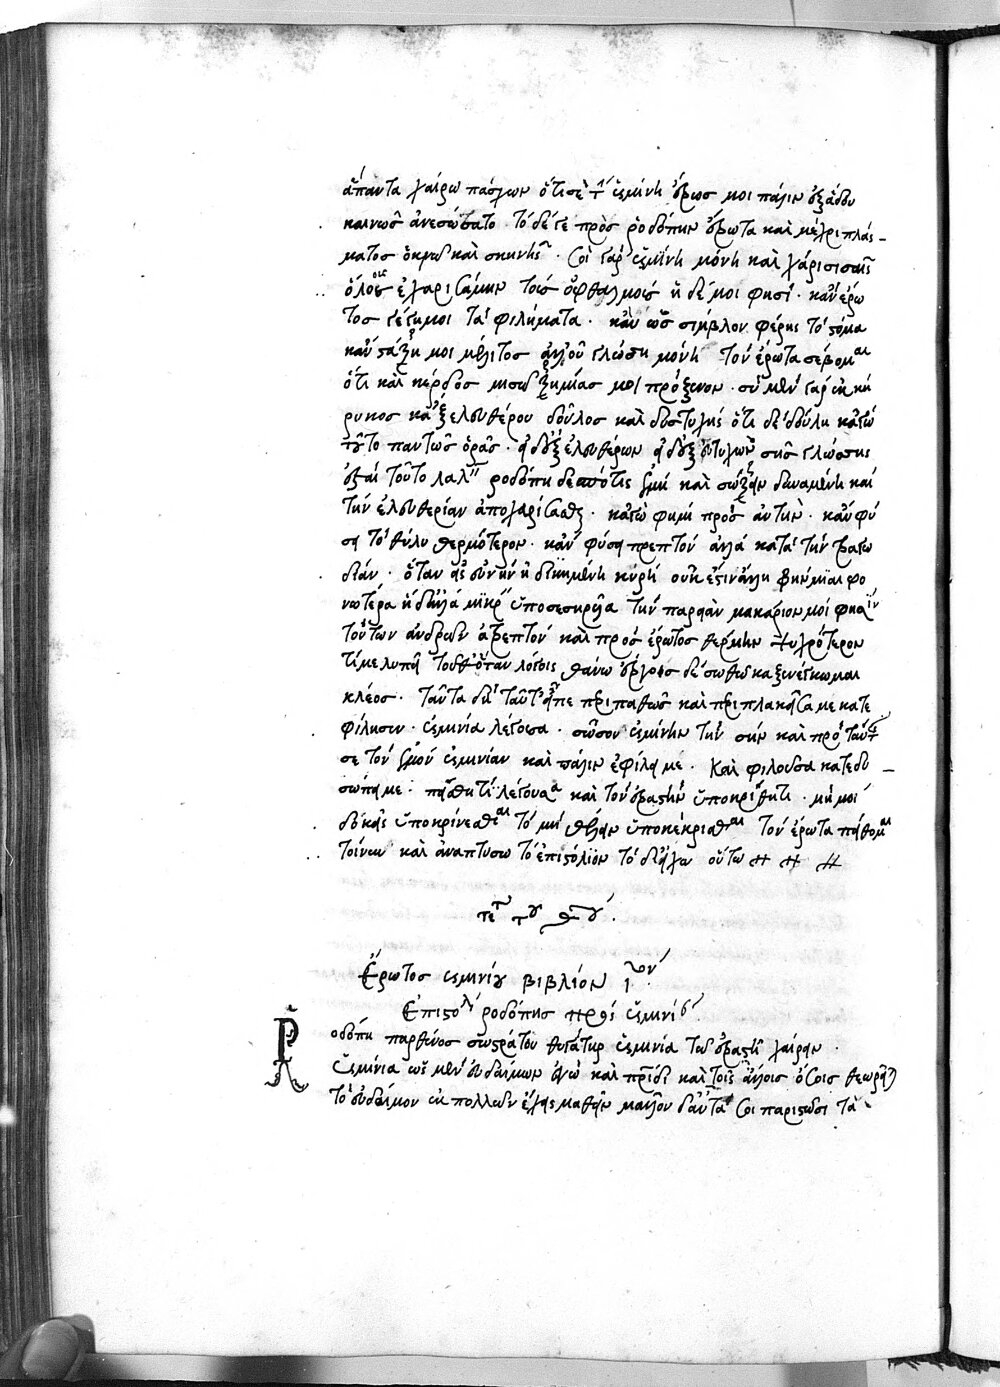 ἅπαντα χαίρω πάσχων ὅτι σὲ τὴν ὑσμίνην ἔρως μοι πάλιν ἐξ ᾅδου
καινῶς ἀνεσώσατο. τὸ δέ γε πρὸς ῥοδόπην ἔρωτα καὶ μέχρι πλάσ-
ματος ὀκνῶ καὶ σκηνῆς. σοὶ γὰρ ὑσμίνη μόνη καὶ χάρισι σαῖς
ὅλους ἐχαρισάμην τοὺς ὀφθαλμούς ἡ δέ μοι φησί. κἂν ἔρω
τος γέγεμοι τὰ φιλήματα. κἂν ὡς σίμβλον φέρῃς τὸ στόμα
κἂν στάζῃ μοι μέλιτος ἀλλ' οὖν γλώσσῃ μόνῃ τὸν ἔρωτα σέβομαι
ὅτι καὶ κέρδος μισῶ ζημίας μοι πρόξενον. σὺ μὲν γὰρ ἐκ κή
ρυκος κἀξ ἐλευθέρου δοῦλος καὶ δυστυχής ὅτι δὲ δούλη κἀγώ
τοῦτο πάντως ὁρᾷς. ἡ δ' ἐξ ἐλευθέρων ἡ δ' ἐξ εὐτυχῶν σῆς γλώσσης
ἐξαὶ τοῦτο λαλεῖν ῥοδόπη δεσπότις ἐμὴ καὶ σώζειν δυναμένη καὶ
τὴν ἐλευθερίαν ἀποχαρίσασθαι. κἀγώ φημι πρὸς αὐτήν. κἂν φύ
σῃ τὸ θῆλυ θερμότερον. κἂν φύσῃ πρεπτὸν ἀλλὰ κατὰ τὴν τραγῳ
δίαν. ὅταν εἰς εὐνὴν ἠδικημένη κυρῇ οὐκ ἔστιν ἄλλη φρὴν μιαιφο
νωτέρα ἡ δ' ἀλλὰ μικρὸν ὑποσεσηρυῖα τὴν παρειὰν μακάριόν μοί φησιν
τοῦτων ἀνδρῶν ἄτρεπτον καὶ πρὸς ἔρωτος θέρμην ψυχρότερον
τί με λυπεῖ τοῦθ' ὅταν λόγοις θάνω ἔργοις δὲ σωθῶ κἀξενέγκωμαι
κλέος. ταῦτα δὴ ταῦτ' εἶπε περιπαθῶς καὶ περιπλακεῖσά με κατε
φίλησεν. ὑσμινία λέγουσα. σῶσον ὑσμίνην τὴν σὴν καὶ πρὸ ταύτης
σε τὸν ἐμὸν ὑσμινίαν καὶ πάλιν ἐφίλει με. Καὶ φιλοῦσα κατεδυ
σώπει με. πείσθητι λέγουσα καὶ τὸν ἐραστὴν ὑποκρίθητι. μή μοι
δοκῇς ὑποκρίνεσθαι τὸ μὴ θέλειν ὑποκέκρισθαι τὸν ἔρωτα πείθομαι
τοίνυν καὶ ἀναπτύσσω τὸ ἐπιστόλιον τὸ δ' εἶχεν οὕτω
τέλος τοῦ θου.
Ἔρωτος ὑσμινίου βιβλίον ιον.
Ἐπιστολὴ ῥοδόπης πρὸς ὑσμινίαν.
Ῥοδόπη παρθένος σωστράτου θυγάτηρ ὑσμινίᾳ τῷ ἐραστῇ χαίρειν.
ὑσμινία ὡς μὲν εὐδαίμων ἐγὼ καὶ πατρίδι καὶ τοῖς ἄλλοις ὅσοις θεωρεῖται
τὸ εὔδαιμον ἐκ πολλῶν ἔχεις μαθεῖν μᾶλλον δ' αὐτά σοι παριστῶσι τὰ